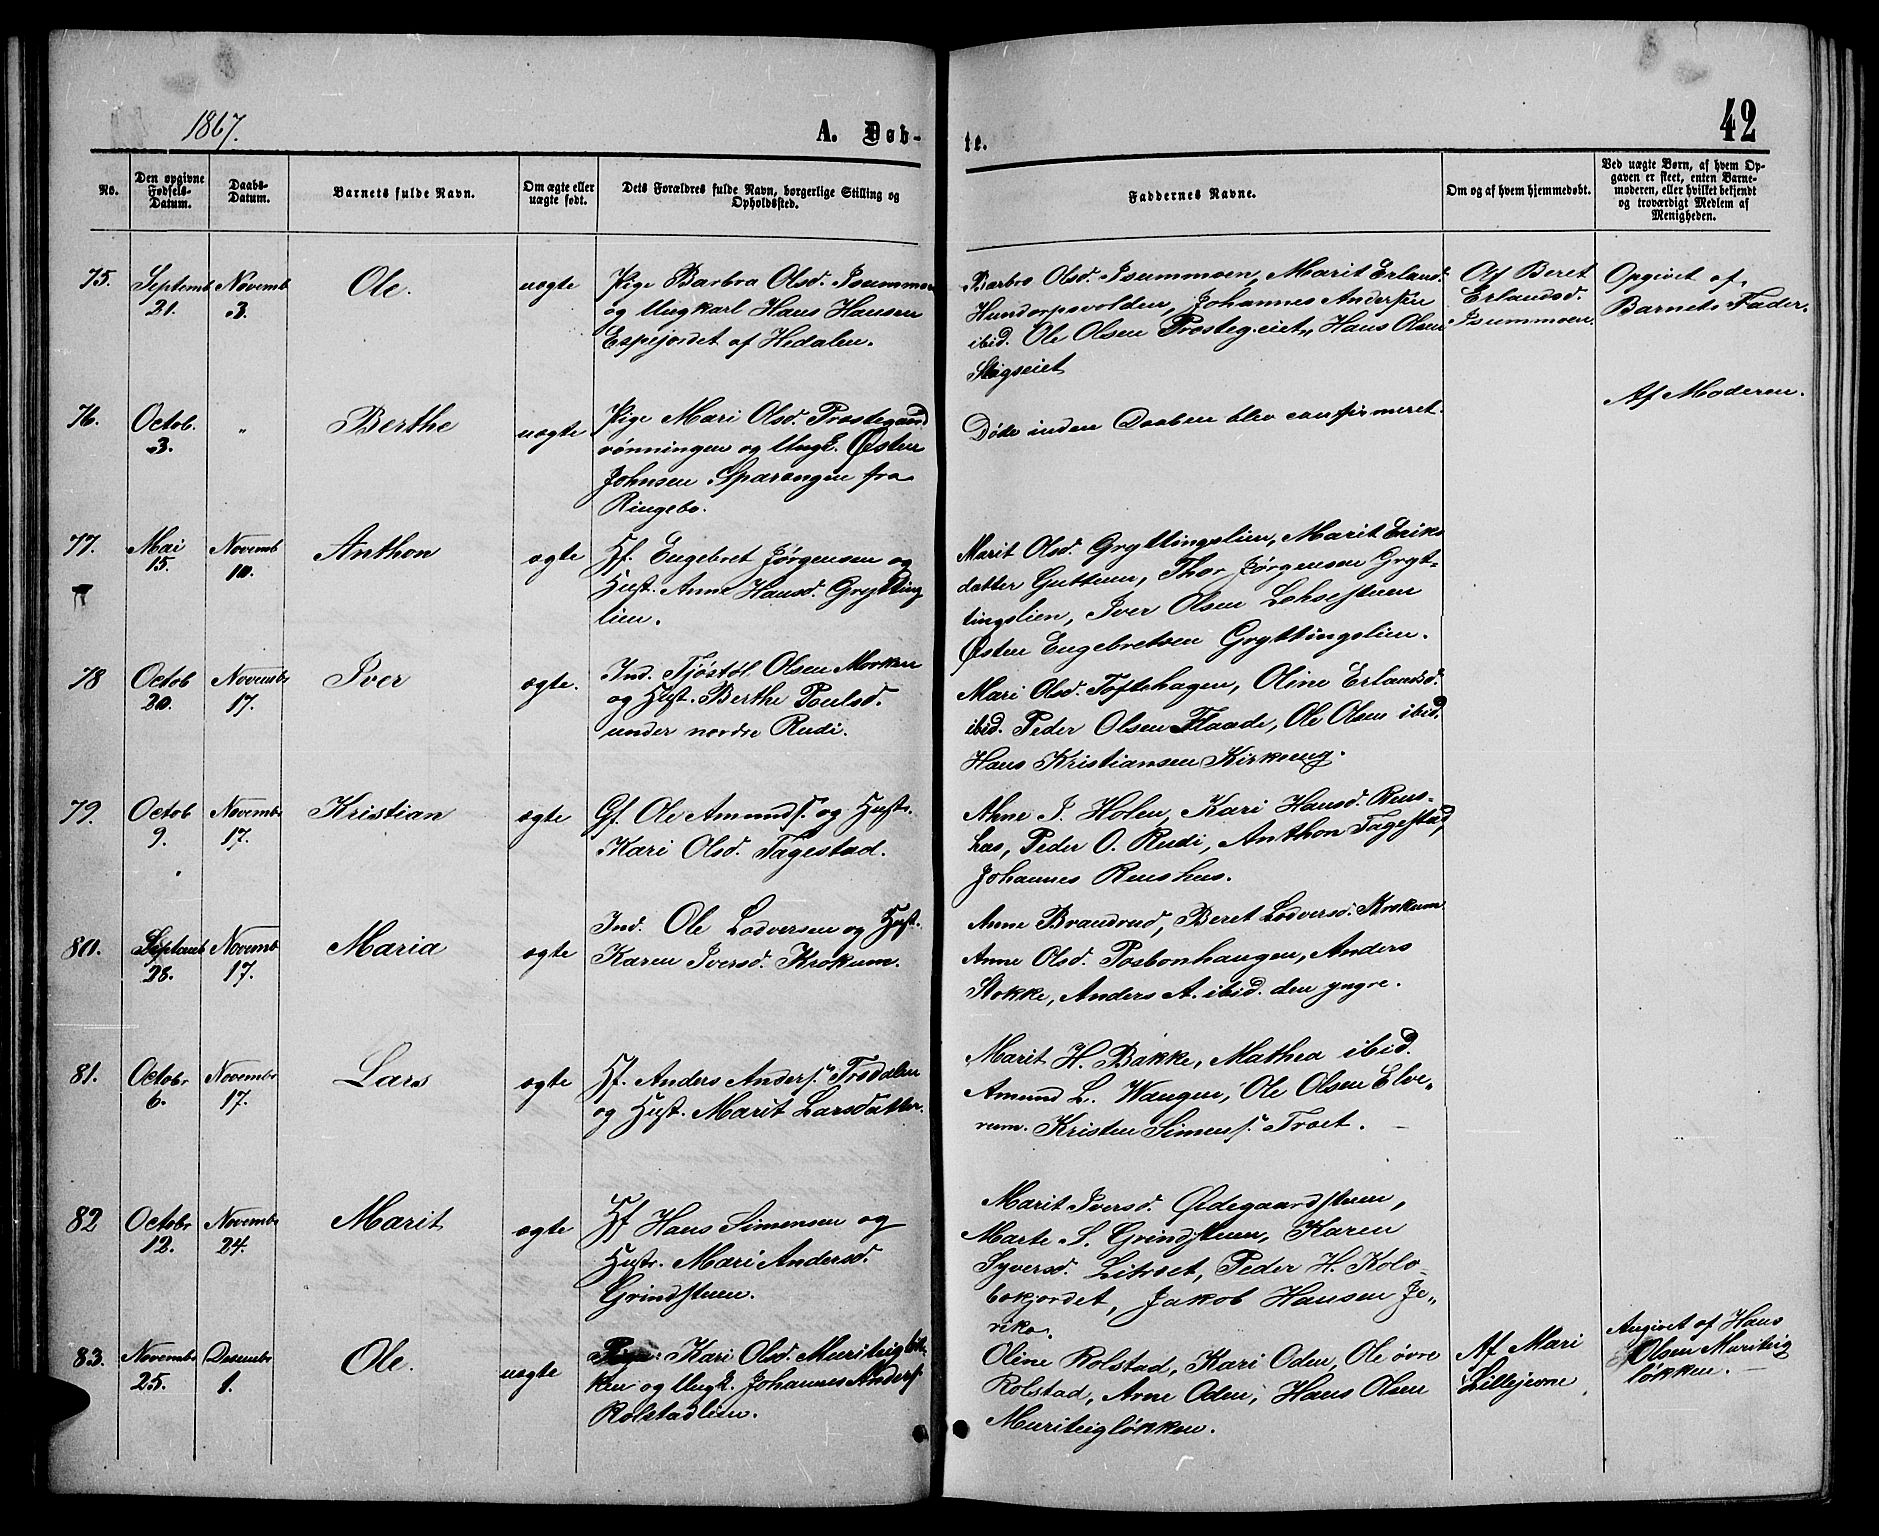 1867.
A. Døb-
te.
42
No.
Den opgivne Fødsels-Datum.
Daabs-Datum.
Barnets fulde Navn.
Om ægte eller uægte født.
Dets Forældres fulde Navn, borgerlige Stilling og Opholdssted.
Faddernes Navne.
Om og af hvem hjemmedøbt.
Ved uægte Børn, af hvem Op-
gaven er skeet, enten Barne-
moderen, eller hvilket bekjendt
og troværdigt Medlem af
Menigheden.
75.
Septemb. 21.
Novemb. 3.
Ole.
uægte
Pige Barbra Olsd. Isummoen
og Ungkarl Hans Hansen
Espejordet af Hedalen.
Barbro Olsd. Isummoen, Marit Erlandd.
Hundorpsvolden, Johannes Andersen
ibid. Ole Olsen Prostegeiet, Hans Olsen
Stigseiet
Af Beret
Erlandsd.
Isummoen.
Opgivet af
Barnets Fader.
76.
Octob. 3.
"
Berthe
uægte
Pige Mari Olsd. Prostegaard
rønningen og Ungk. Østen
Johnsen Sparangen fra
Ringebo.
Døde inden Daaben blev confirmeret.
Af Moderen.
77.
Mai 15.
Novemb 10.
Anthon
ægte
Hf. Engebret Jørgensen og
Hust. Anne Hansd. Grytting
lien.
Marit Olsd. Gryttingslien, Marit Eriks
datter Guttum, Thor Jørgensen Gryt-
tingslien, Iver Olsen Lohnestuen
Østen Engebretsen Gryttingslien.
78
Octob 20.
Novembr 17.
Iver
ægte.
Ind. Tjøstøl Olsen Moeken
og Hust. Berthe Poulsd.
under nordre Rudi.
Mari Olsd. Toftehagen, Oline Erlandsd.
ibid. Peder Olsen Flaade, Ole Olsen ibid.
Hans Kristiansen Kirkeeng.
79.
Octob 9.
Novembr 17.
Kristian
ægte
Gf. Ole Amunds. og Hustr.
Kari Olsd. Tagestad.
Anne J. Holen, Kari Hansd. Rens-
hus, Peder O. Rudi, Anthon Tagestad,
Johannes Renshus.
80.
Septemb 28.
Novemb 17.
Maria
ægte
Ind. Ole Lodversen og Hust.
Karen Iversd. Krokum.
Anne Brandrud, Beret Lodversd. Krokum
Anne Olsd. Posbonhaugen, Anders
Stokke, Anders A. ibid. den yngre.
81.
Octobr 6.
Novembr 17.
Lars
ægte
Hf. Anders Anders. Trodalen
og Hust. Marit Larsdatter.
Marit H. Bakke, Mathea ibid.
Amund L. Wangen, Ole Olsen Elve-
rum. Kristen Simens. Troet.
82
Octobr 12.
Novembr 24.
Marit
ægte
Hf Hans Simensen og
Hustr. Mari Andersd.
Grindstuen.
Marit Iversd. Ødegaardstuen,
Marte S. Grindstuen, Karen
Syversd. Litroet, Peder H. Kolo-
bokjordet, Jakob Hansen Je-
riko.
83.
Novembr 25.
Desembr 1.
Ole.
uægte
Pige Kari Olsd. Muriteigløk-
ken og Ungk. Johannes Anders.
Rolstadlien.
Oline Rolstad, Kari Oden, Ole øvre
Rolstad, Arne Oden, Hans Olsen
Muriteigløkken.
Af Mari
Lillejevne
Angivet af Hans
Olsen Muriteig
løkken.